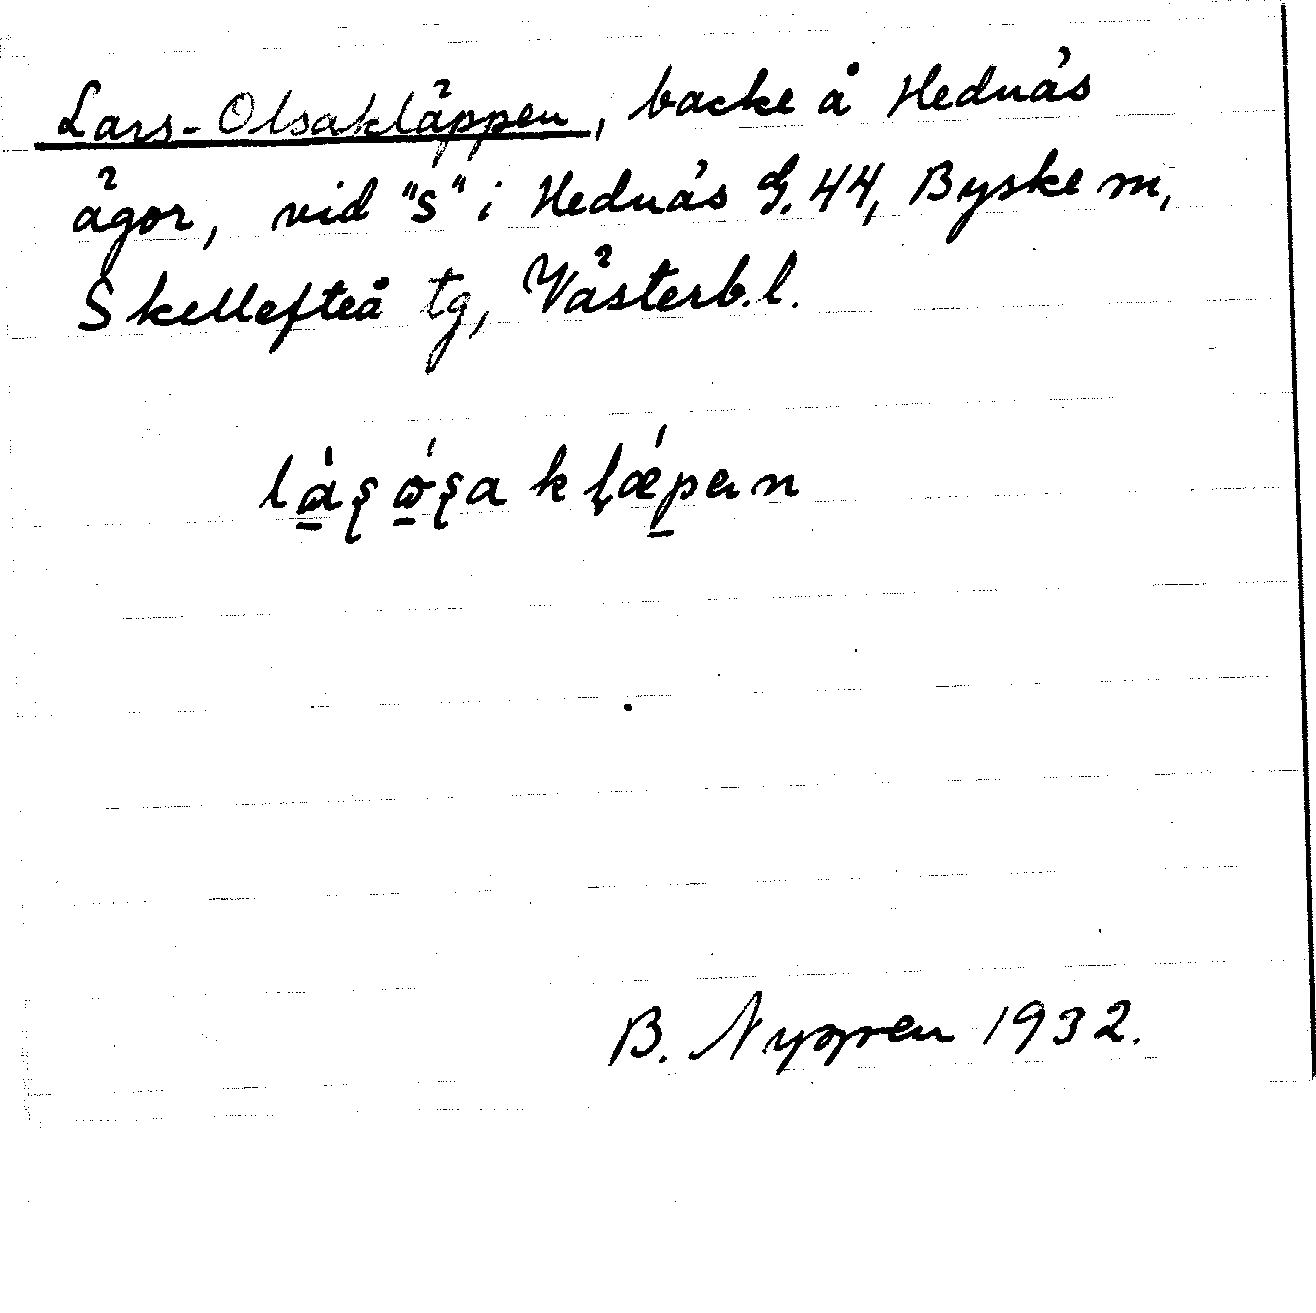 Lars-Olsakläppen, backe å Hednäs
ägor, vid "s" i Hednäs G. 44, Byske m,
Skellefteå tg, Västerb. l.
B. Nygren 1932.